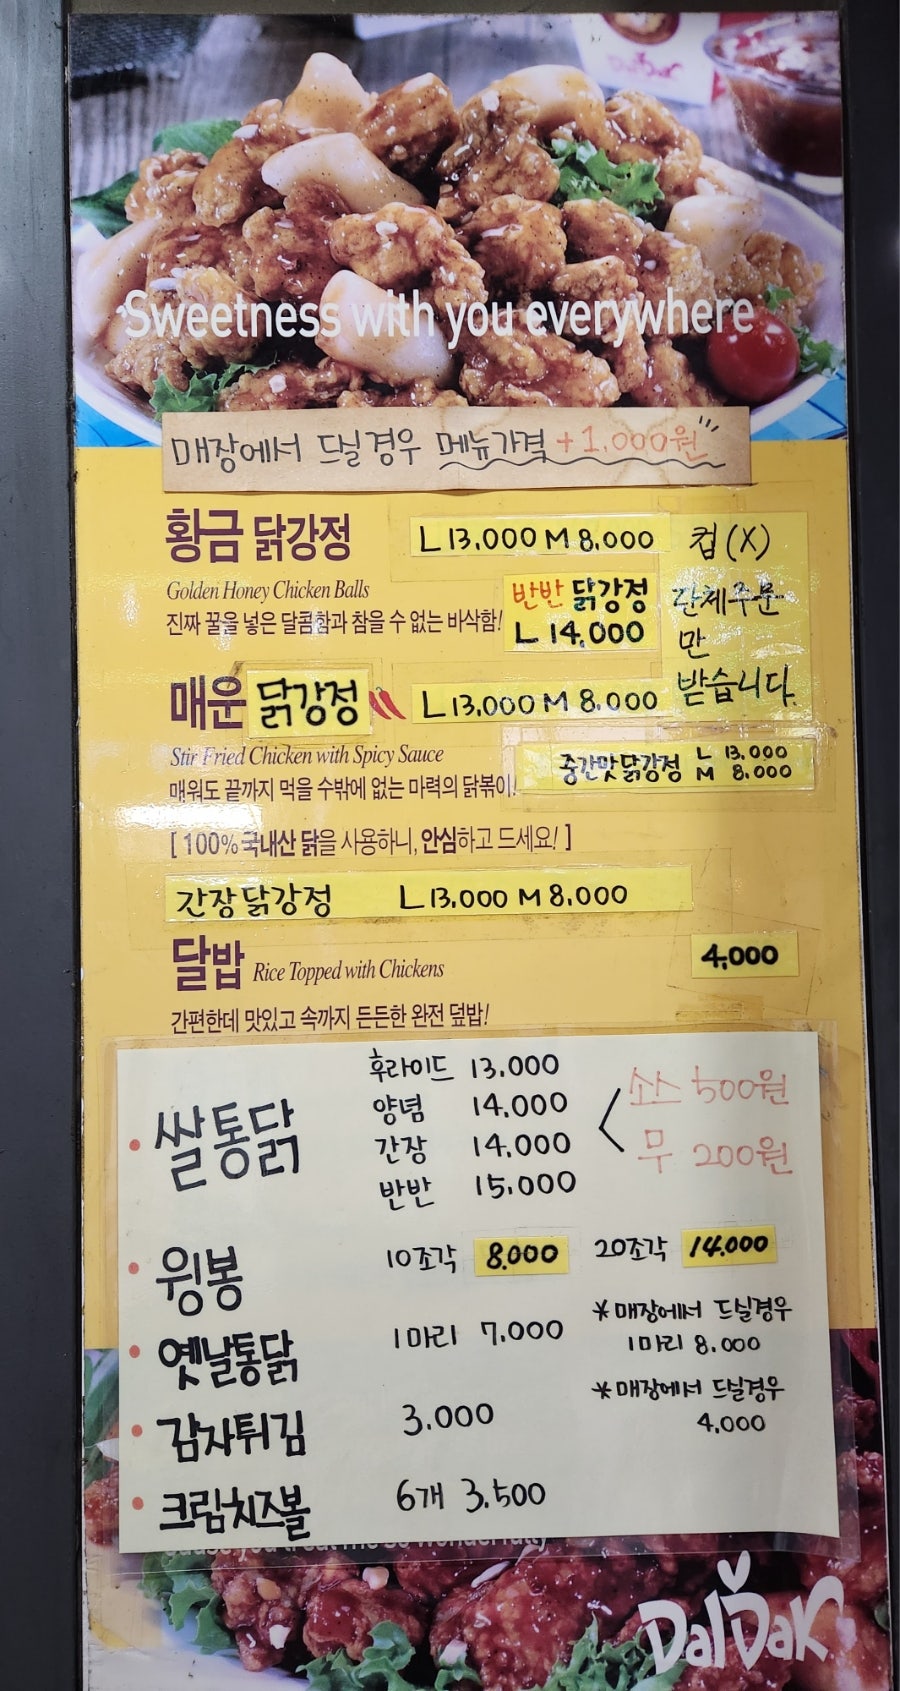 DalDak
Sweetness with you everywhere
매장에서 드실경우 메뉴가격 +1.000원
황금 닭강정 L 13.000 M 8.000
Golden Honey Chicken Balls
진짜 꿀을 넣은 달콤함과 참을 수 없는 바삭함!
반반 닭강정
L 14.000
컵(X)
단체주문
만
받습니다.
매운 닭강정 L 13.000 M 8.000
Stir Fried Chicken with Spicy Sauce
매워도 끝까지 먹을 수밖에 없는 마력의 닭볶이!
중간맛닭강정 L 13.000
M 8.000
[ 100% 국내산 닭을 사용하니, 안심하고 드세요! ]
간장닭강정 L 13.000 M 8.000
달밥 Rice Topped with Chickens 4,000
간편한데 맛있고 속까지 든든한 완전 덮밥!
• 쌀통닭
후라이드 13.000
양념 14.000
간장 14.000
반반 15.000
소스 500원
무 200원
• 윙봉 10조각 8.000 20조각 14.000
• 옛날통닭 1마리 7.000
* 매장에서 드실경우
1마리 8.000
• 감자튀김 3.000
* 매장에서 드실경우
4.000
• 크림치즈볼 6개 3.500
DalDak